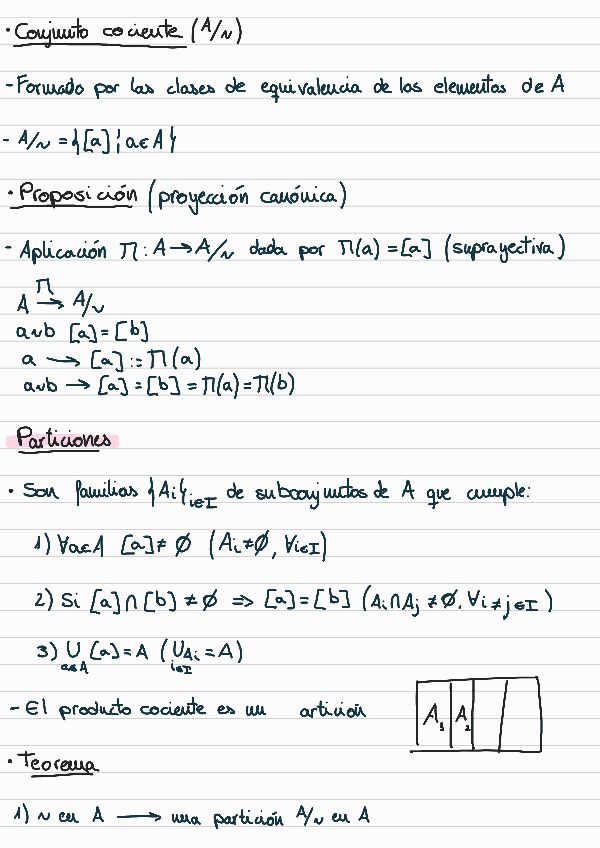 · Conjunto cociente (A/~)
- Formado por las clases de equivalencia de los elementos de A
- A/~ = {[a] | a∈A}
· Proposición (proyección canónica)
- Aplicación Π: A → A/~ dada por Π(a) = [a] (suprayectiva)
A →^Π A/~
a~b [a] = [b]
a → [a] := Π(a)
a~b → [a] = [b] = Π(a) = Π(b)
Particiones
· Son familias {Ai}i∈I de subconjuntos de A que cumple:
1) ∀a∈A [a] ≠ ∅ (Ai ≠ ∅, ∀i∈I)
2) Si [a] ∩ [b] ≠ ∅ => [a] = [b] (Ai ∩ Aj ≠ ∅. ∀i≠j∈I)
3) ∪a∈A [a] = A (∪i∈I Ai = A)
- El producto cociente es un artición
A₁ A₂
· Teorema
1) ~ en A → una partición A/~ en A